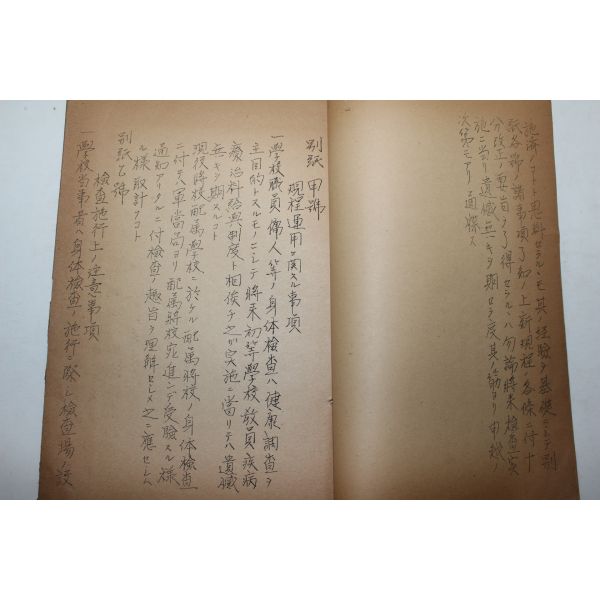 施濟ノコト思料セラルヽモ其ノ経験ヲ基礎トシテ別
紙各號ノ諸事項了知ノ上新規程ノ各條ニ付十
分改正ノ要旨ヲ了得セラルヽハ勿論將来検査実
施ニ当リ遺憾無キヲ期セラ度其ノ筋ヨリ申越ノ
次第モアリ通牒ス
別紙甲號
規程運用ニ関スル事項
一學校職員傭人等ノ身体検査ハ健康調査ヲ
主目的トスルモノニシテ將来初等學校教員疾病
療治料給與制度ト相俟チ之ガ実施ニ當リテハ遺憾
無キヲ期スルコト
現役將校配属學校ニ於ケル配属將校ノ身体検査
ニ付テハ軍當局ヨリ配属將校宛進ンデ受験スル様
通知アリタルニ付検査ノ趣旨ヲ理解セシメ之ニ應セシム
ル様取計フコト
別紙乙號
検査施行上ノ注意事項
一學校当事者ハ身体検査ノ施行ニ際シ検査場ノ設